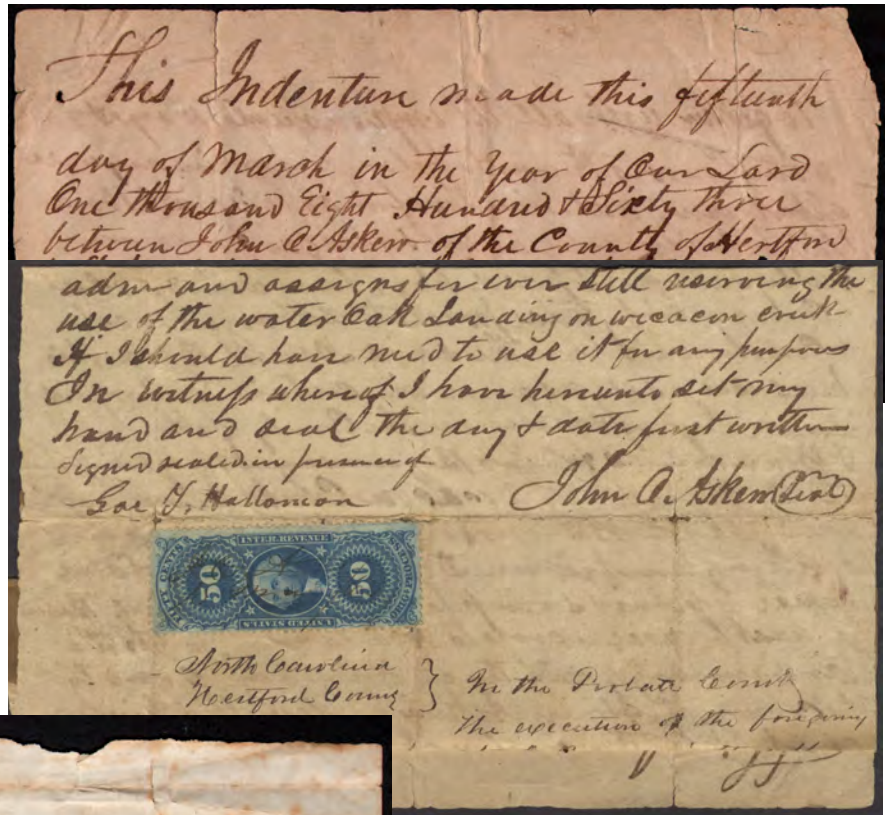 This Indenture made this fifteenth
day of March in the Year of Our Lord
One thousand Eight Hundred & Sixty three
between John A. Askew of the County of Hertford
admr and assigns for ever still reserving the
use of the water Oak Landing on wicacon creek
If I should have need to use it for any purpose
In witness whereof I have hereunto set my
hand and seal the day & date first written
Signed sealed in presence of
John A. Askew (Seal)
Geo T. Hallomon
INTER. REVENUE
FIFTY CENTS
50
50
UNITED STATES
North Carolina
Hertford County
In the Probate Court
The execution of the foregoing